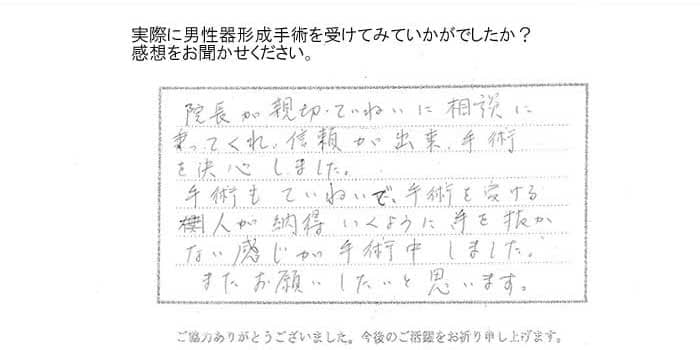 実際に男性器形成手術を受けてみていかがでしたか？
感想をお聞かせください。
院長が親切・ていねいに相談に
乗ってくれ、信頼が出来、手術
を決心しました。
手術もていねいで、手術を受ける
人が納得いくように手を抜か
ない感じが手術中しました。
またお願いしたいと思います。
ご協力ありがとうございました。今後のご活躍をお祈り申し上げます。